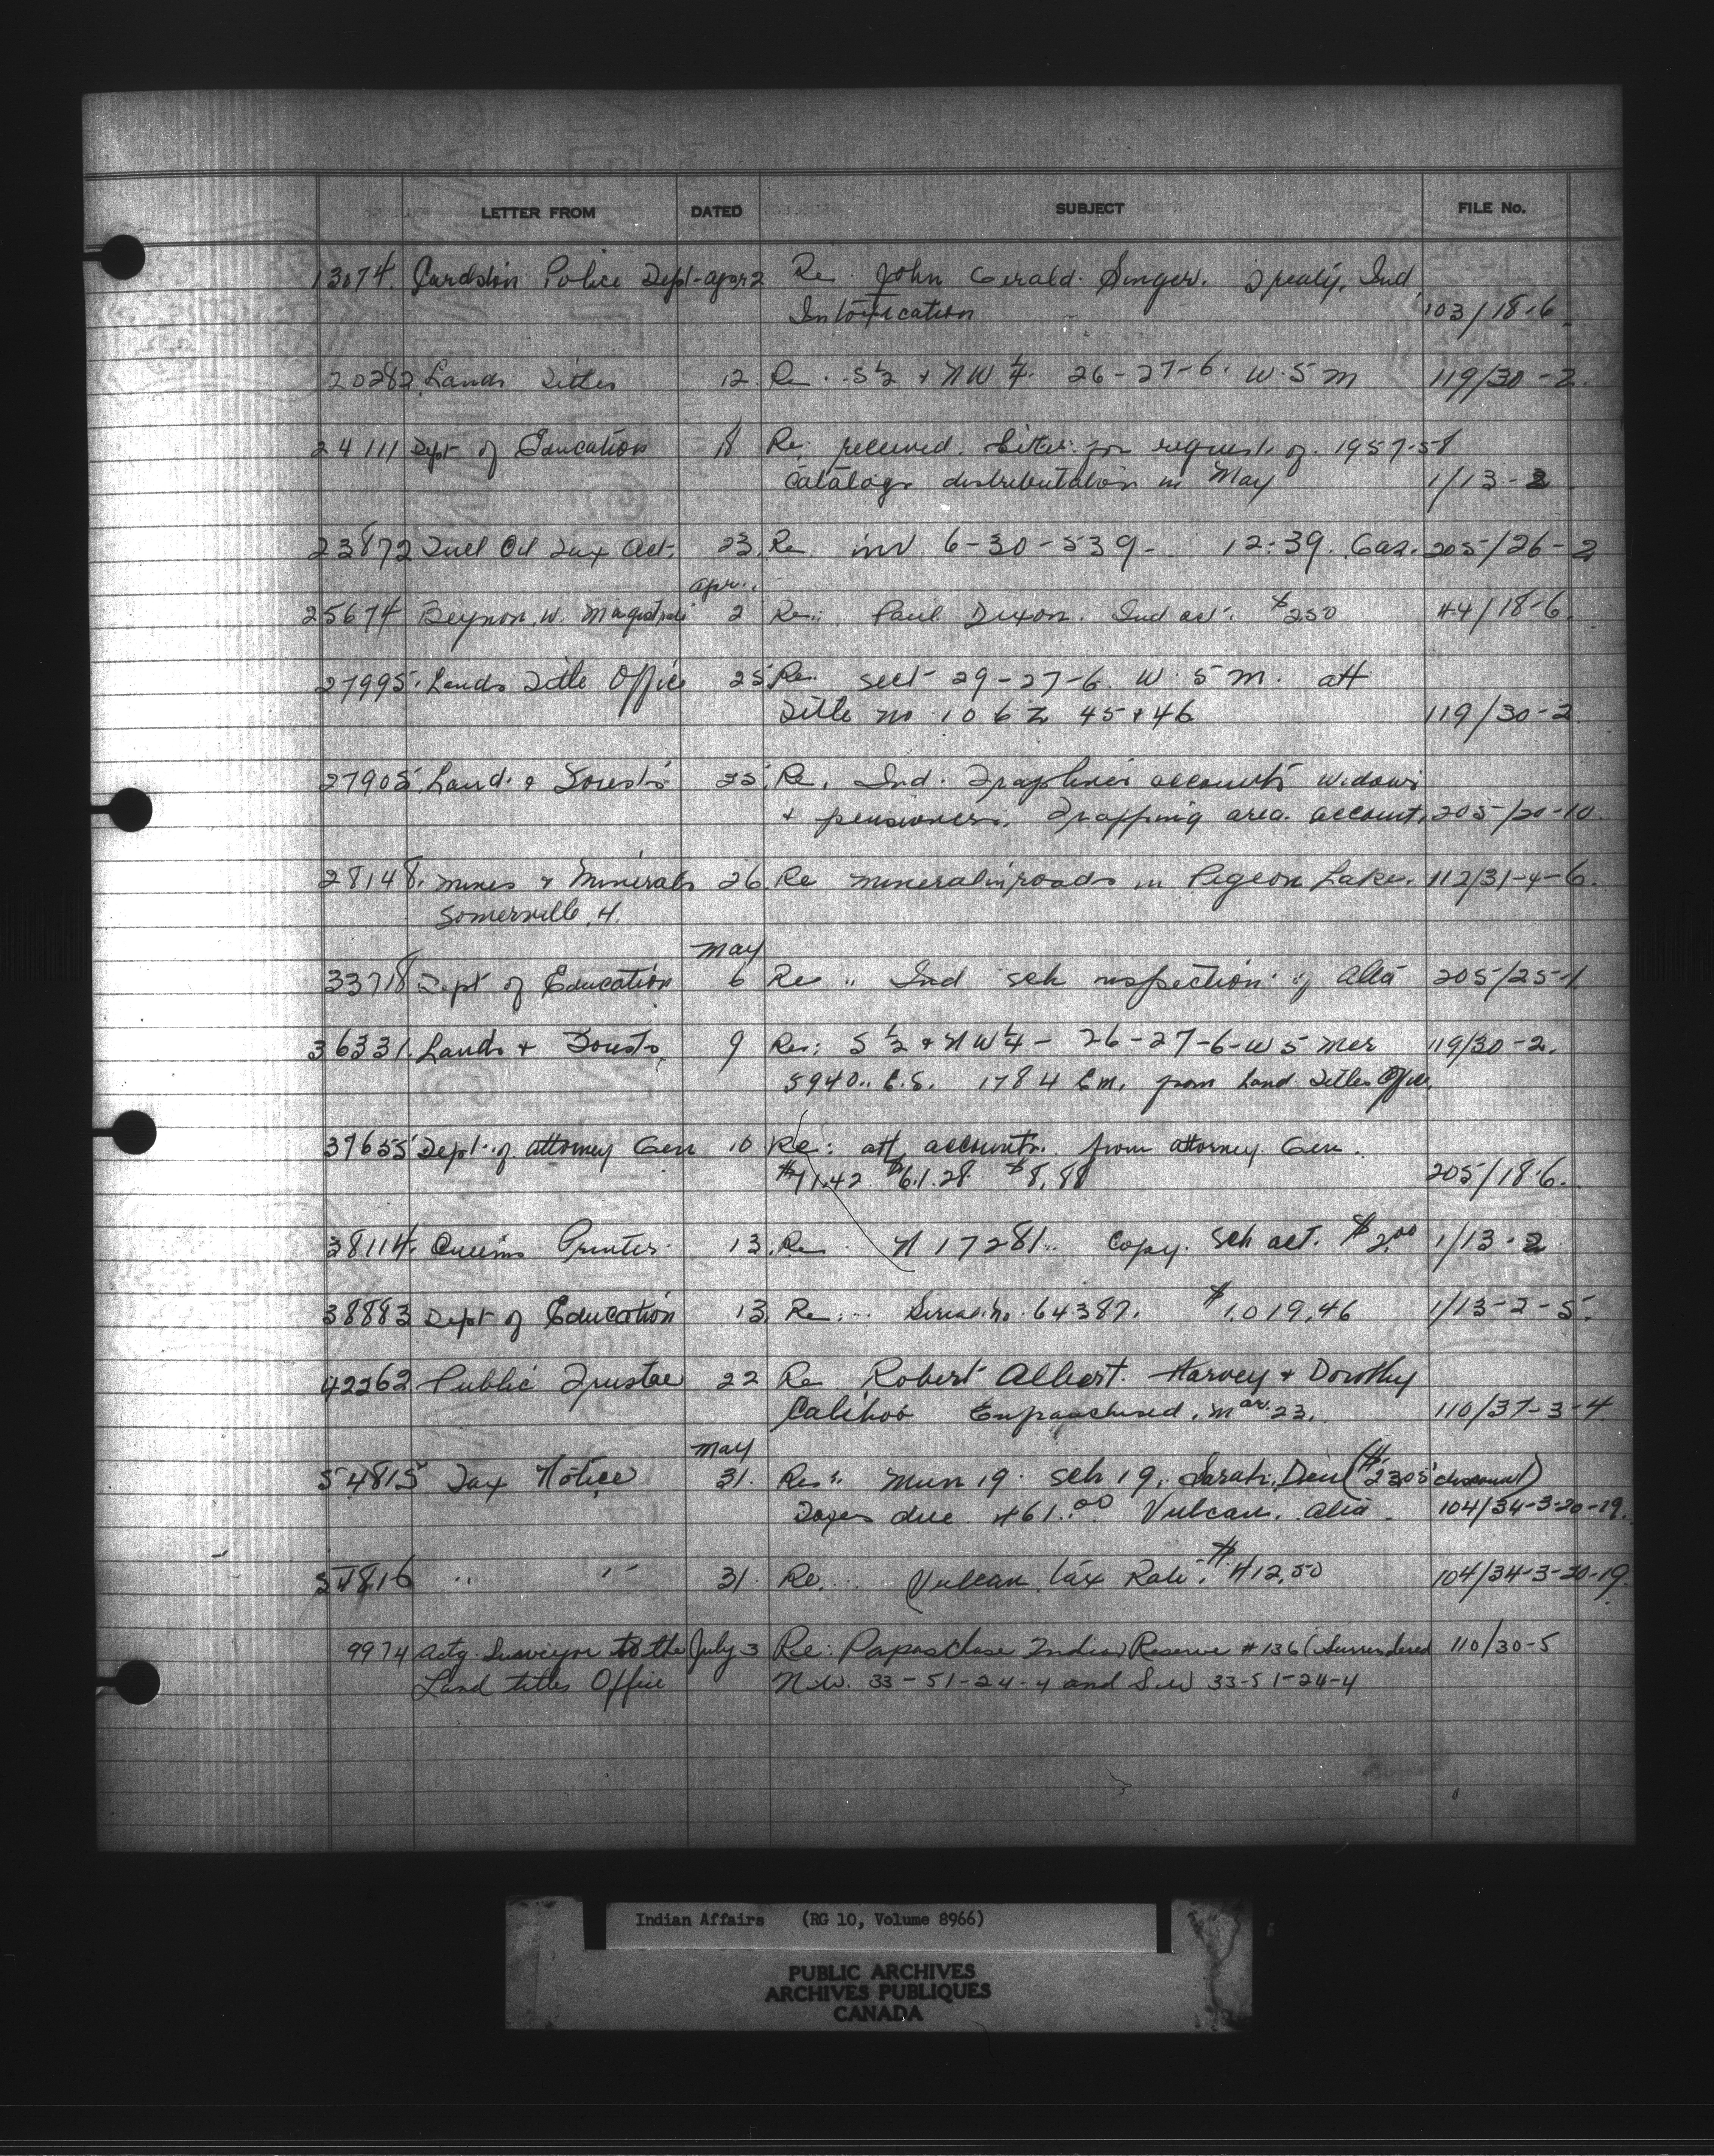 LETTER FROM DATED SUBJECT FILE No.
13074. Cardston Police Dept - Apr 2 Re. John Gerald Singer. Treaty. Ind
Intoxication 103/18-6
20282 Lands Titles 12. Re. S ½ + NW ¼. 26-27-6. W. 5 M 119/30-2
24111 Dept of Education 18 Re: received. for request. of. 1957-58
Catalogs distributation in May 1/13-2
23872 Fuel Oil Tax Act. 23. Re inv 6-30-539- 12.39. Gas. 205/26-2
Apr.
25674 Beynon. W. Magistrate 2 Re: Paul Dixon. Ind act. $250 44/18-6.
27995. Lands Title Office 25 Re. sect 29-27-6. W. 5 M. att
Title no 106 Z 45 + 46 119/30-2
27905. Land. & Forests 25. Re. Ind. Trapline accounts widows
+ pensioners. Trapping area. account. 205/20-10
28148. Mines & Minerals 26 Re mineral in roads in Pigeon Lake. 112/31-4-6.
Somerville, H.
May
33718 Dept of Education 6 Re .. Ind sch inspection of Alta 205/25-1
36331. Lands + Forests 9 Re: S ½ + NW ¼ - 26-27-6-W 5 Mer 119/30-2.
5940.. E.S. 1784 E.M. from Land Titles Office.
37655 Dept. of Attorney Gen 10 Re: att accounts. from Attorney Gen.
$71.42 $61.28 $8.88 205/18-6.
38114. Queens Printer 13. Re. N 17281.. Copy. Sch act. $2.00 1/13-2
38883 Dept of Education 13. Re: Serial no. 64387. $1.019.46 1/13-2-5.
42262 Public Trustee 22 Re Robert Albert. Harvey + Dorothy
Calihoo Enfranchised. Mar. 23. 110/37-3-4
May
54815 Tax Notice 31. Re: Mun 19. Sch 19. Sarah. ($23.05 discount)
Taxes due 461.00 Vulcan. Alta. 104/34-3-20-19.
54816 " " 31. Re. Vulcan, tax Rate. $412.50 104/34-3-20-19.
9974 Actg. Surveyor to the July 3 Re: Papaschase Indian Reserve # 136 (Surrendered 110/30-5
Land titles Office N.W. 33-51-24-4 and S.W 33-51-24-4
Indian Affairs (RG 10, Volume 8966)
PUBLIC ARCHIVES
ARCHIVES PUBLIQUES
CANADA